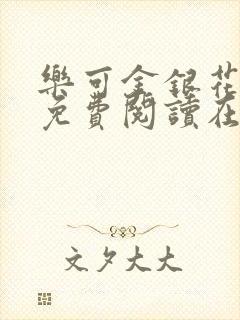 樂可金銀花
免費閱讀在
文夕大大